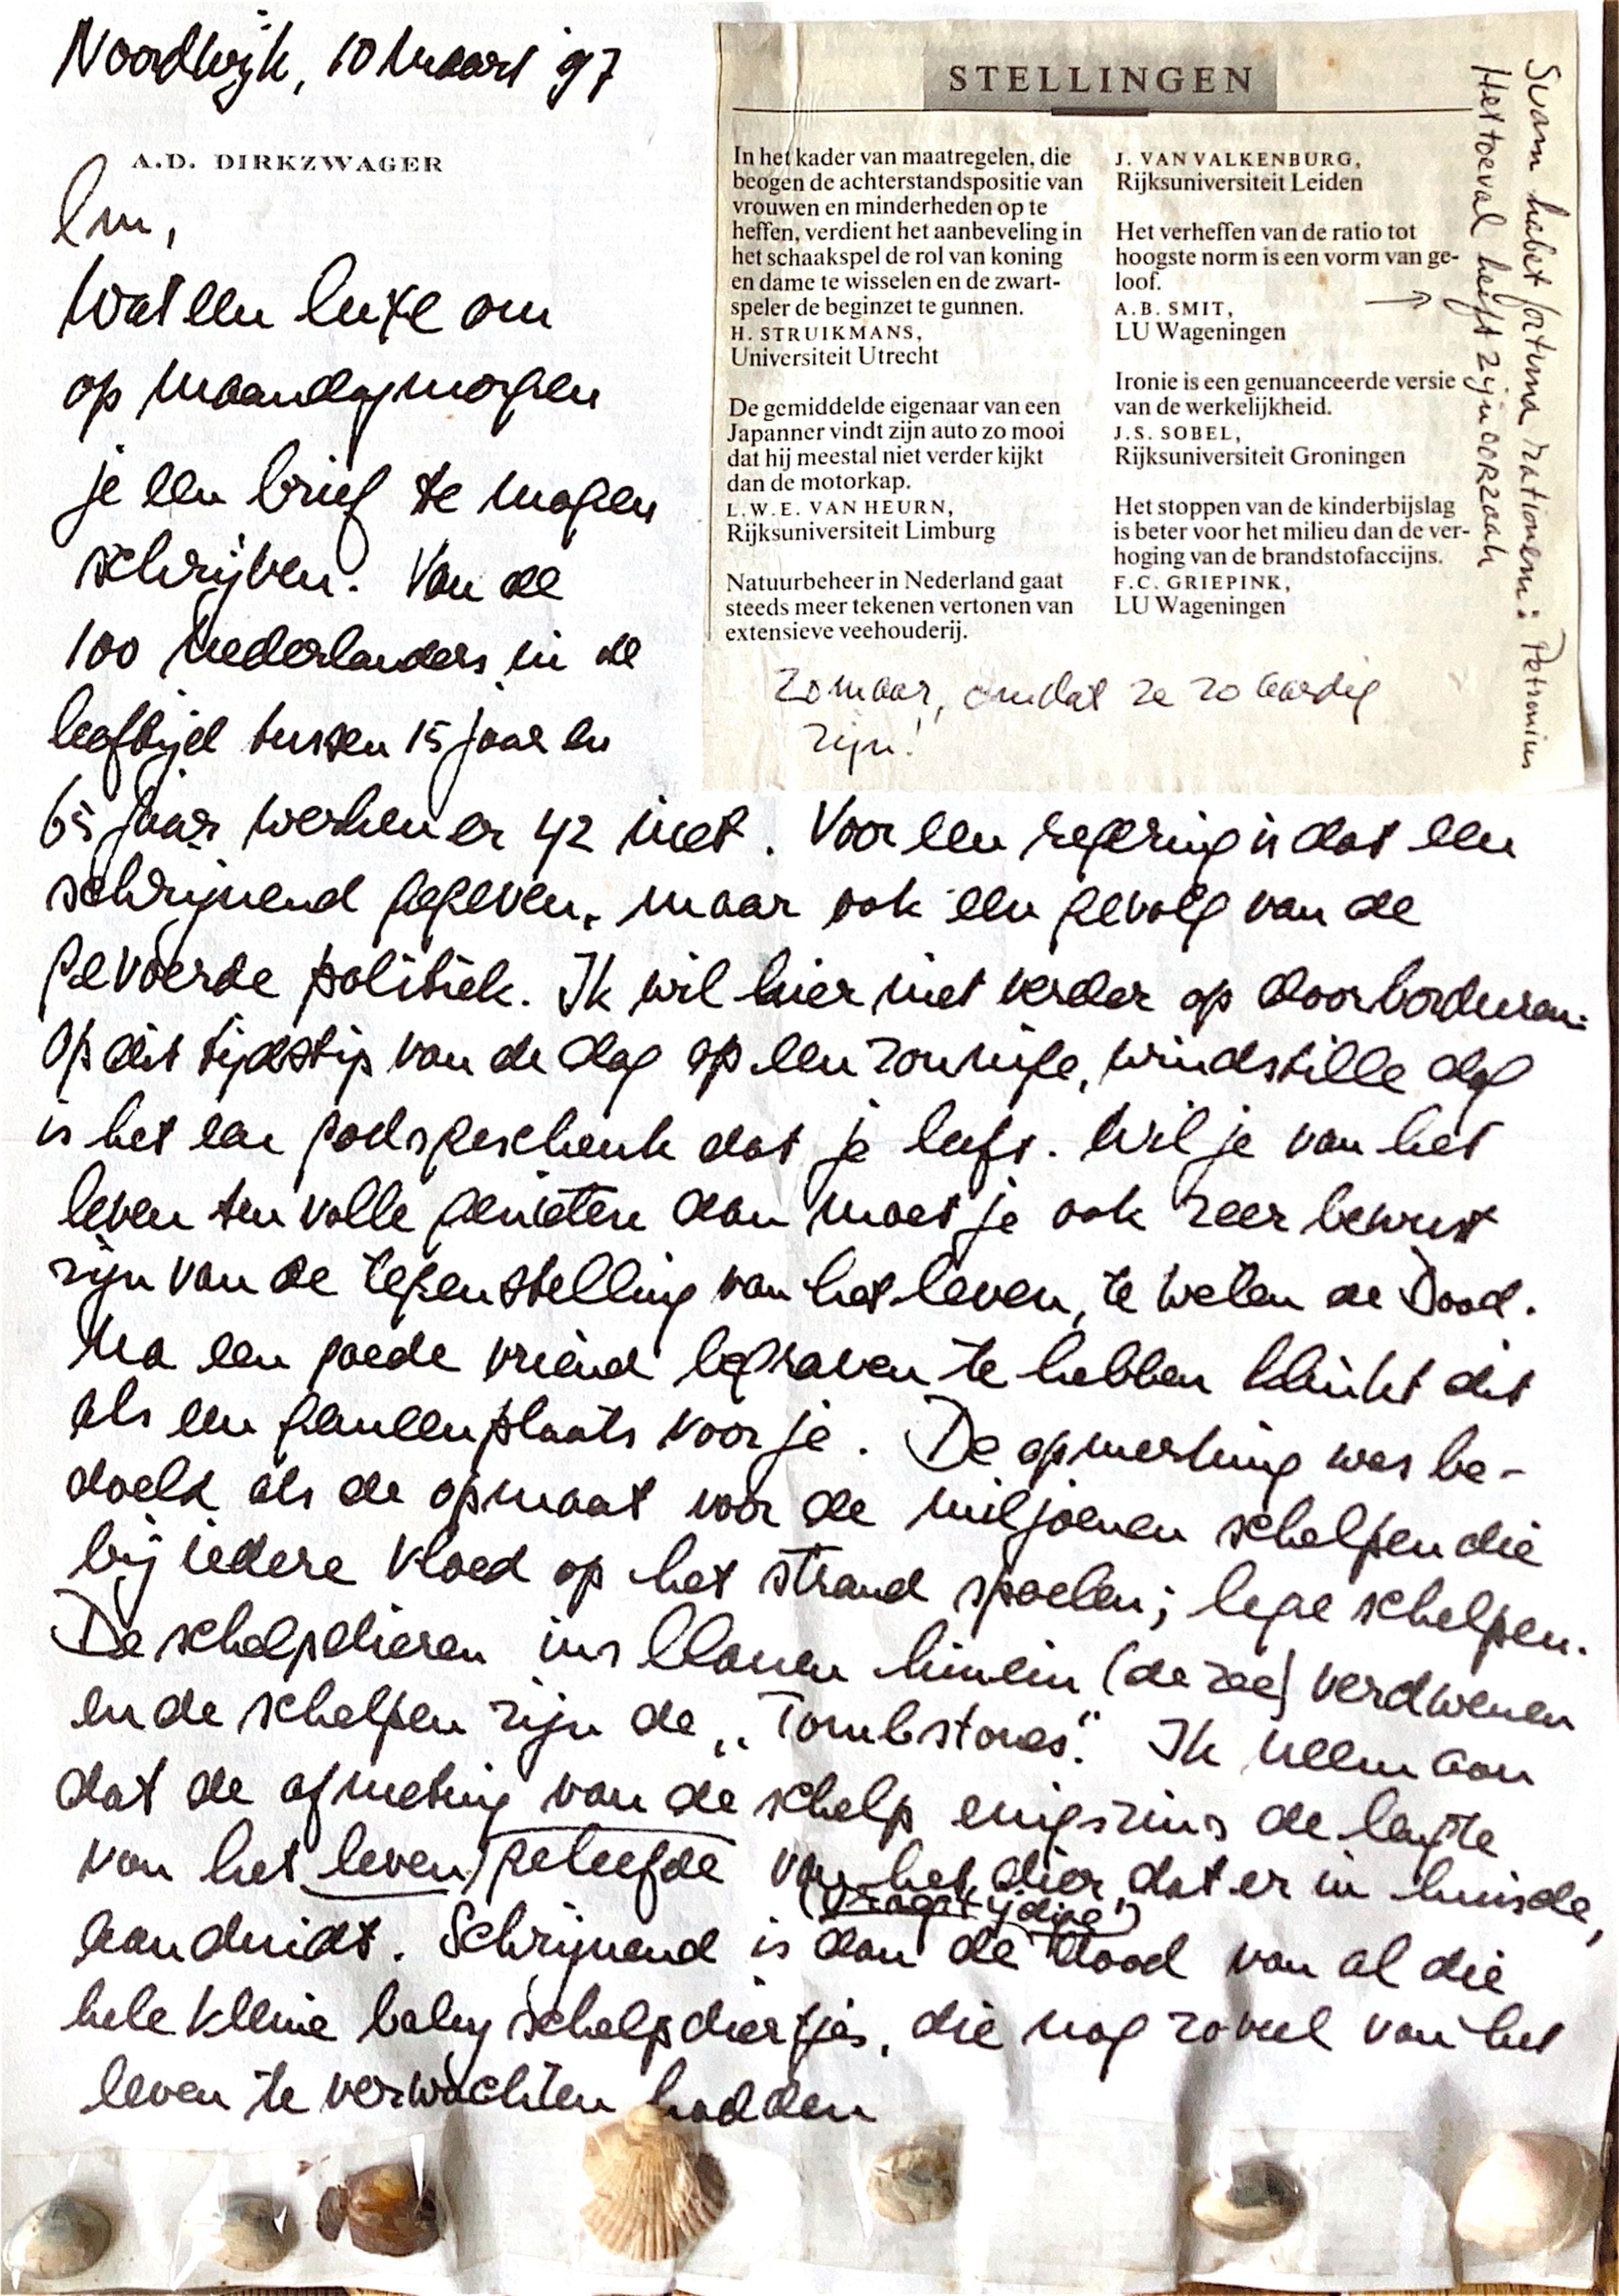 Noordwijk, 10 maart '97
A.D. DIRKZWAGER
Wat een luxe om
op maandagmorgen
je een brief te mogen
schrijven. Van de
100 Nederlanders in de
leeftijd tussen 15 jaar en
65 jaar werken er 42 niet. Voor een regering is dat een
schrijnend gegeven, maar ook een gevolg van de
gevoerde politiek. Ik wil hier niet verder op doorborduren.
Op dit tijdstip van de dag op een zonnige, windstille dag
is het een godsgeschenk dat je leeft. Wil je van het
leven ten volle genieten dan moet je ook zeer bewust
zijn van de tegenstelling van het leven, te weten de Dood.
Na een goede vriend begraven te hebben klinkt dit
als een gemeenplaats voor je. De opmerking was be-
doeld als de opmaat voor de miljoenen schelpen die
bij iedere vloed op het strand spoelen; lege schelpen.
De schelpdieren ins Blauen hinein (de zee) verdwenen
en de schelpen zijn de „Tombstones". Ik neem aan
dat de afmeting van de schelp enigszins de lengte
van het leven/geleefde van het dier, dat er in huisde,
aanduidt. Schrijnend is dan de ("vroegtijdige") dood van al die
hele kleine baby schelpdiertjes, die nog zoveel van het
leven te verwachten hadden
STELLINGEN
In het kader van maatregelen, die
beogen de achterstandspositie van
vrouwen en minderheden op te
heffen, verdient het aanbeveling in
het schaakspel de rol van koning
en dame te wisselen en de zwart-
speler de beginzet te gunnen.
H. STRUIKMANS,
Universiteit Utrecht
De gemiddelde eigenaar van een
Japanner vindt zijn auto zo mooi
dat hij meestal niet verder kijkt
dan de motorkap.
L.W.E. VAN HEURN,
Rijksuniversiteit Limburg
Natuurbeheer in Nederland gaat
steeds meer tekenen vertonen van
extensieve veehouderij.
J. VAN VALKENBURG,
Rijksuniversiteit Leiden
Het verheffen van de ratio tot
hoogste norm is een vorm van ge-
loof.
A.B. SMIT,
LU Wageningen
Ironie is een genuanceerde versie
van de werkelijkheid.
J.S. SOBEL,
Rijksuniversiteit Groningen
Het stoppen van de kinderbijslag
is beter voor het milieu dan de ver-
hoging van de brandstofaccijns.
F.C. GRIEPINK,
LU Wageningen
Zomaar, omdat ze zo aardig
zijn!
Suam habet fortuna rationem: Petronius
Het toeval heeft zijn OORzaak